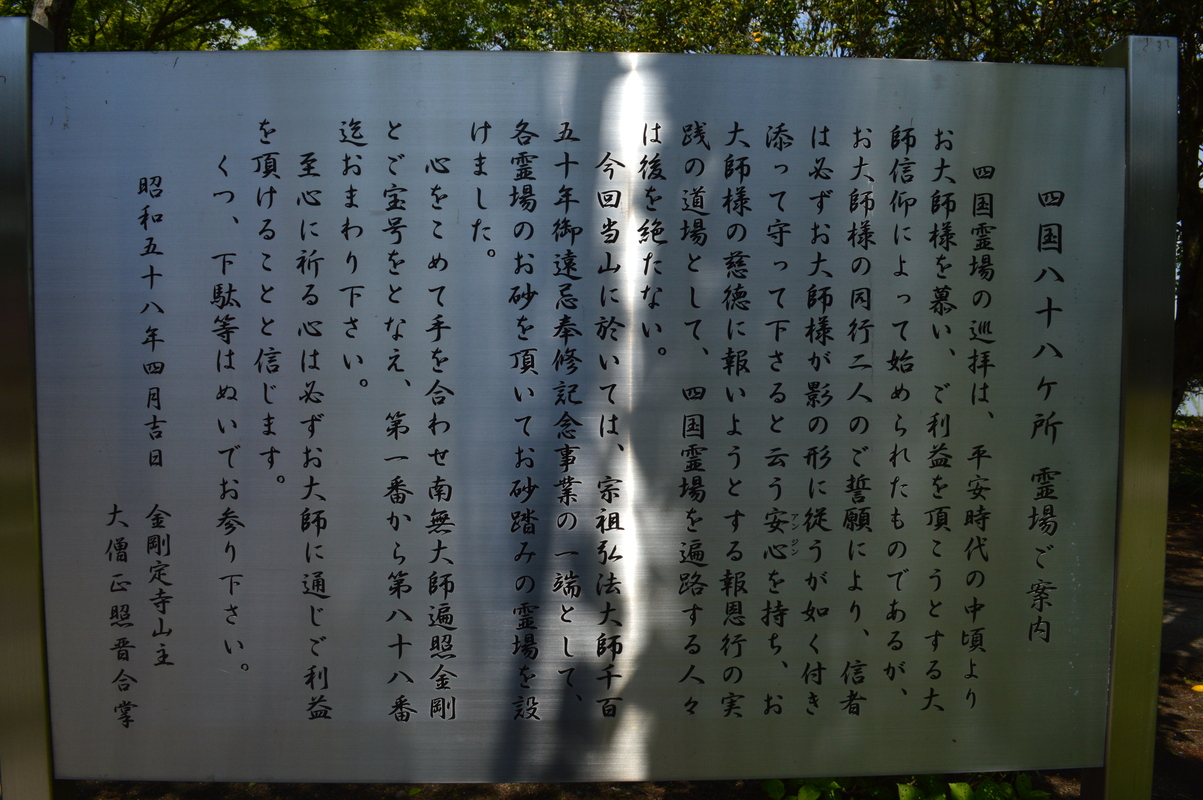 四国八十八ケ所 霊場ご案内
四国霊場の巡拝は、平安時代の中頃より
お大師様を慕い、ご利益を頂こうとする大
師信仰によって始められたものであるが、
お大師様の同行二人のご誓願により、信者
は必ずお大師様が影の形に従うが如く付き
添って守って下さると云う安心を持ち、お
アンジン
大師様の慈徳に報いようとする報恩行の実
践の道場として、四国霊場を遍路する人々
は後を絶たない。
今回当山に於いては、宗祖弘法大師千百
五十年御遠忌奉修記念事業の一端として、
各霊場のお砂を頂いてお砂踏みの霊場を設
けました。
心をこめて手を合わせ南無大師遍照金剛
とご宝号をとなえ、第一番から第八十八番
迄おまわり下さい。
至心に祈る心は必ずお大師に通じご利益
を頂けることと信じます。
くつ、下駄等はぬいでお参り下さい。
昭和五十八年四月吉日
金剛定寺山主
大僧正照晋合掌